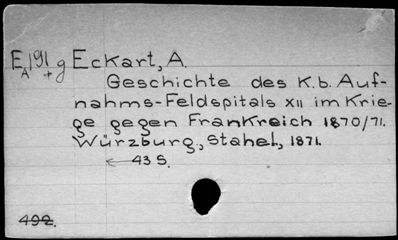 E 191 g Eckart, A.
A +
Geschichte des K.b. Auf-
nahms-Feldspitals XII im Krie-
ge gegen Frankreich 1870/71.
Würzburg, Stahel, 1871.
43 S.
492.